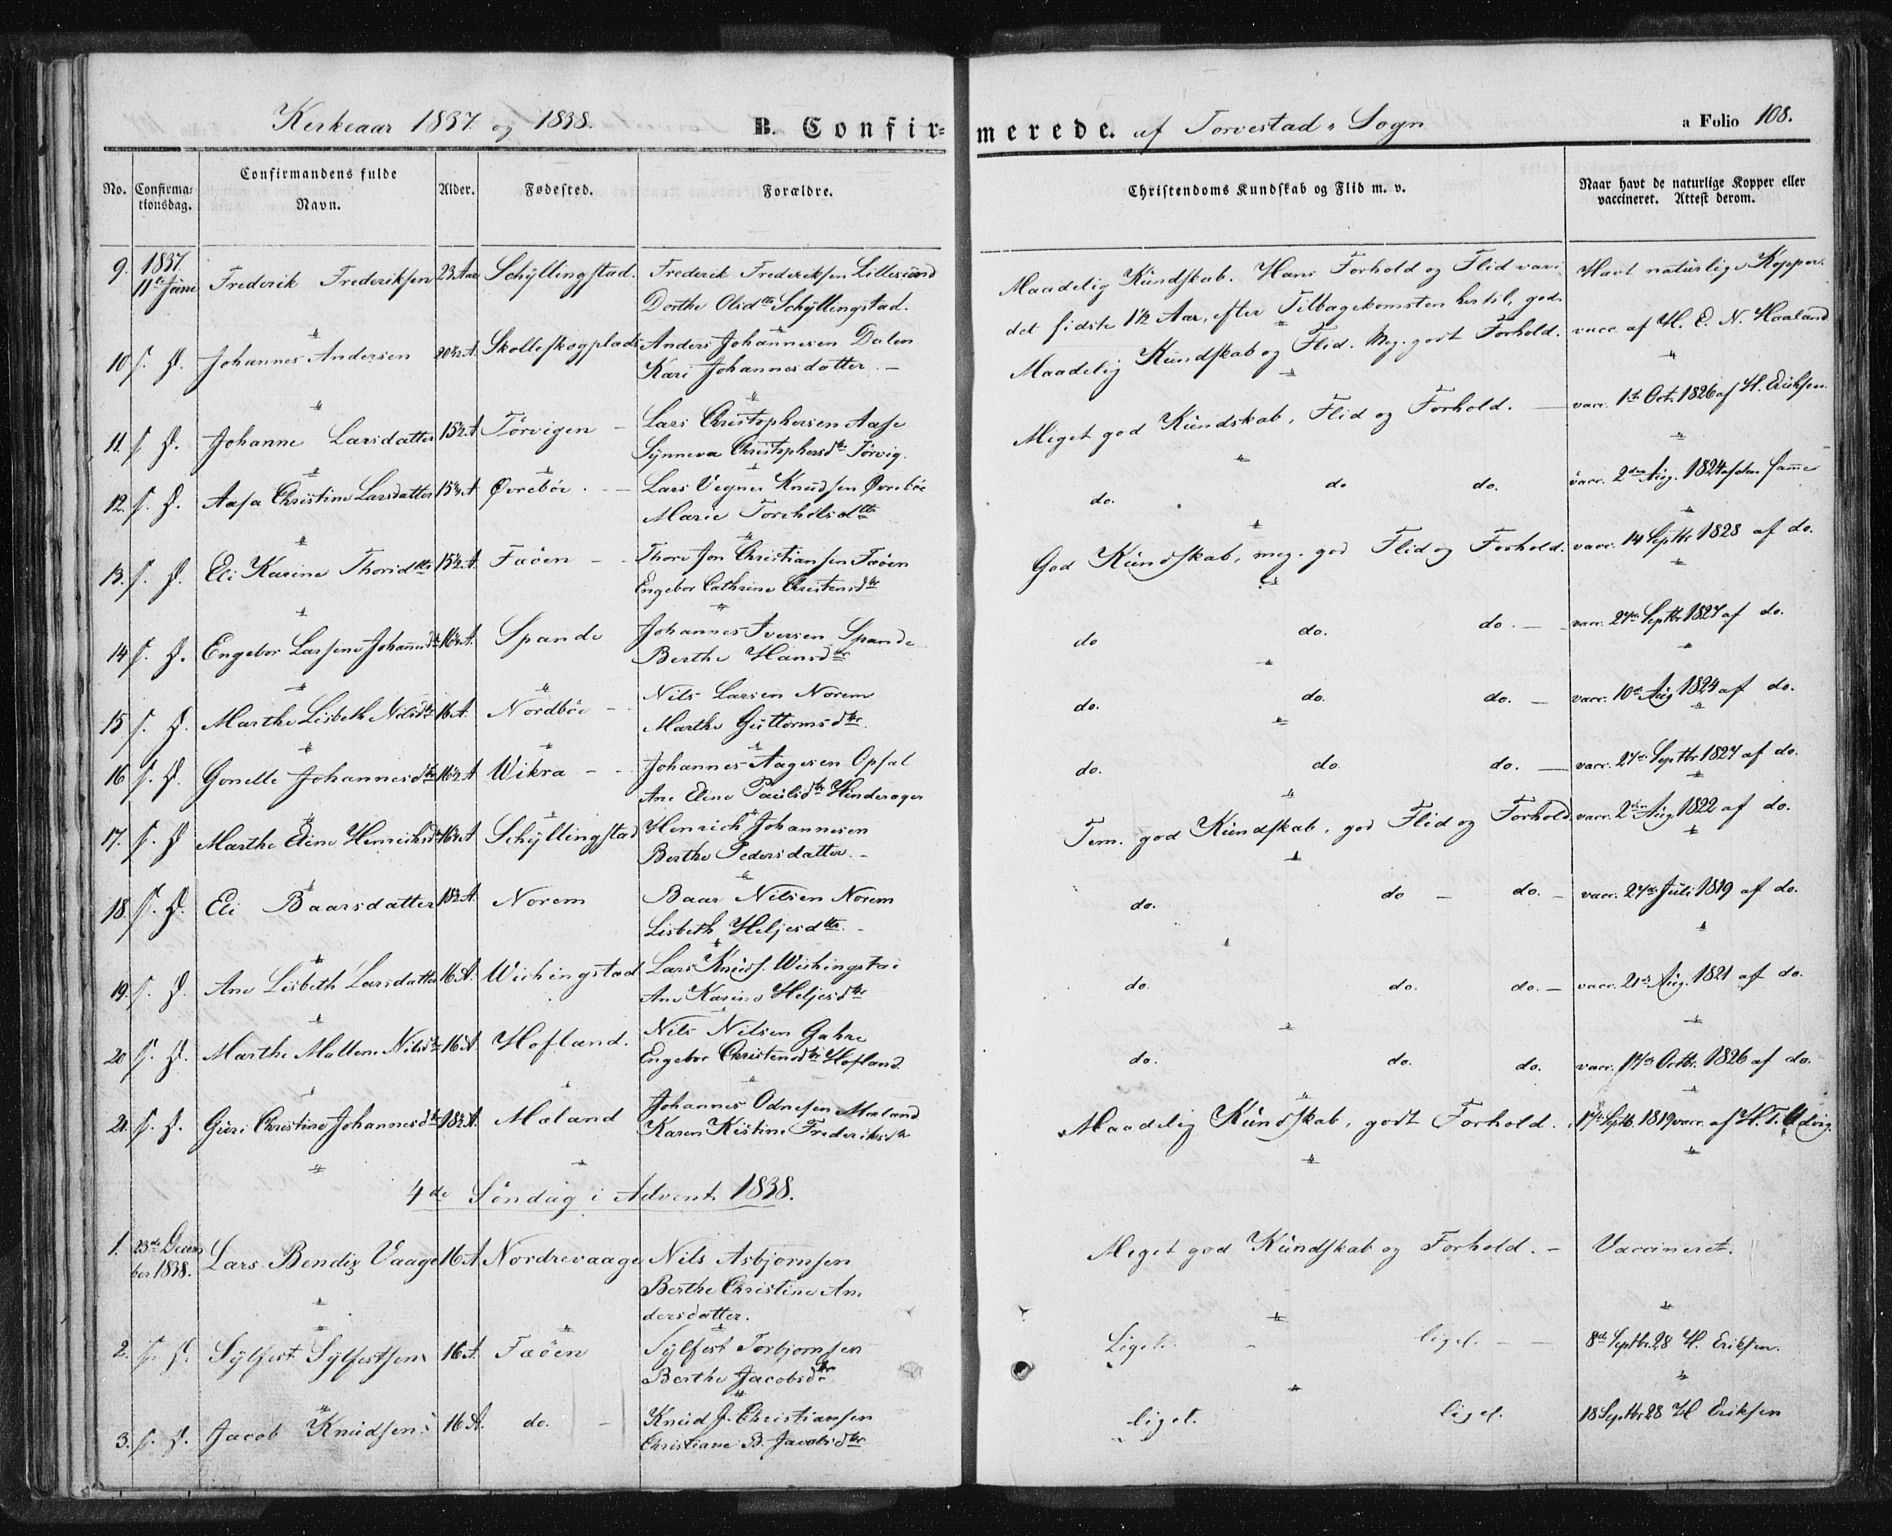 Kirkeaar 1837 og 1838. B. Confirmerede. af Torvestad Sogn a Folio 108.
No. Confirmationsdag. Confirmandens fulde Navn. Alder. Fødested. Forældre. Christendoms Kundskab og Flid m. v. Naar havt de naturlige Kopper eller vaccineret. Attest derom.
9. 1837 11te Juni Frederik Frederiksen 23 Aar Schyllingstad. Frederik Frederiksen Lillesund Maadelig Kundskab. Hans Forhold og Flid vare Havt naturlige Kopper.
Dorthe Olsdtr Schyllingstad. det sidste 1½ Aar, efter Tilbagekomsten hertil, god.
10 s. D. Johannes Andersen 20½ A. Skolleskogplads Anders Johannesen Dalen Maadelig Kundskab og Flid. Meg. godt Forhold. vacc. af H. E. N. Haaland
Kari Johannesdatter. –
11. s. D. Johanne Larsdatter 15½ A Torvigen – Lars Christophersen Aase Meget god Kundskab, Flid og Forhold. – vacc. 1ste Oct. 1826 af H. Eriksen.
Synneva Christophersdtr Torvig.
12. s. D. Aasa Christine Larsdatter 15¼ A Øvrebøe – Lars Vegner Knudsen Øvrebøe do. do do. vacc. 2den Aug. 1824 af den samme
Marie Torchilsdtr
13. s. D. Eli Karine Thorisdtr 15½ A. Fæöen – Thore Jon Christiansen Fæöen God Kundskab, meg. god Flid og Forhold. vacc. 14 Septbr 1828 af do.
Engebor Cathrine Christensdtr
14 s. D. Engebor Larsine Johannesdtr 16½ A. Spande Johannes Iversen Spande do do. do. – vacc. 27de Septbr 1827 af do.
Berthe Hansdtr
15 s. D. Marthe Lisbeth Nilsdtr 16 A. Nordbøe – Nils Larsen Norem do. do. do. – vacc. 10de Aug 1824 af do.
Marthe Guttormsdtr.
16 s. D. Gonelle Johannesdtr 16½ A Wikra – Johannes Aagesen Opsal do. do. do. – vacc. 27de Septbr 1827 af do.
Ane Eline Paulsdtr Hinderager
17. s. D Marthe Eline Henrichsdtr 16¼ A Schyllingstad Henrich Johannesen Tem. god Kundskab, god Flid og Forhold vacc. 2den Aug 1822 af do.
Berthe Pedersdatter. –
18. s. D. Eli Baarsdatter 18½ A. Norem Baar Nilsen Norem do. do – do. – vacc. 27de Juli 1819 af do.
Lisbeth Heljesdtr. –
19. s. D. Ane Lisbeth Larsdatter 16 A. Wichingstad Lars Knuds. Wichingstad do. do. do. – vacc. 21de Aug. 1821 af do.
Ane Karine Heljesdtr
20 s. D. Marthe Mallene Nilsdtr 16 A Hofland. Nils Nilsen Gahre do. do. do. vacc. 17de Octbr. 1826 af do.
Engebor Christensdtr Hofland
21. s. D. Guri Christine Johannesdtr 18½ A. Mæland Johannes Odnesen Mæland Maadelig Kundskab, godt Forhold. 17de Septb. 1819 vacc. af H. T. Udvig.
Karen Kistine Frederiksdtr
4de Söndag i Advent 1838.
1. 23de December 1838. Lars Bendix Vaage 16 A Nordrevaage Nils Asbjornsen Meget god Kundskab og Forhold. – Vaccineret.
Berthe Christine An
dersdatter.
2. s. D. Sylfest Sylfestsen 16 A. Fæöen Sylfest Torbjornsen Ligel. liget. – – 8de Septbr. 28 H. Eriksen.
Berthe Jacobsdtr
3. s. D. Jacob Knudsen 16 A. do. – Knud J. Christiansen liget. liget. 18 Septbr 28 H Eriksen
Christiane B. Jacobsdtr